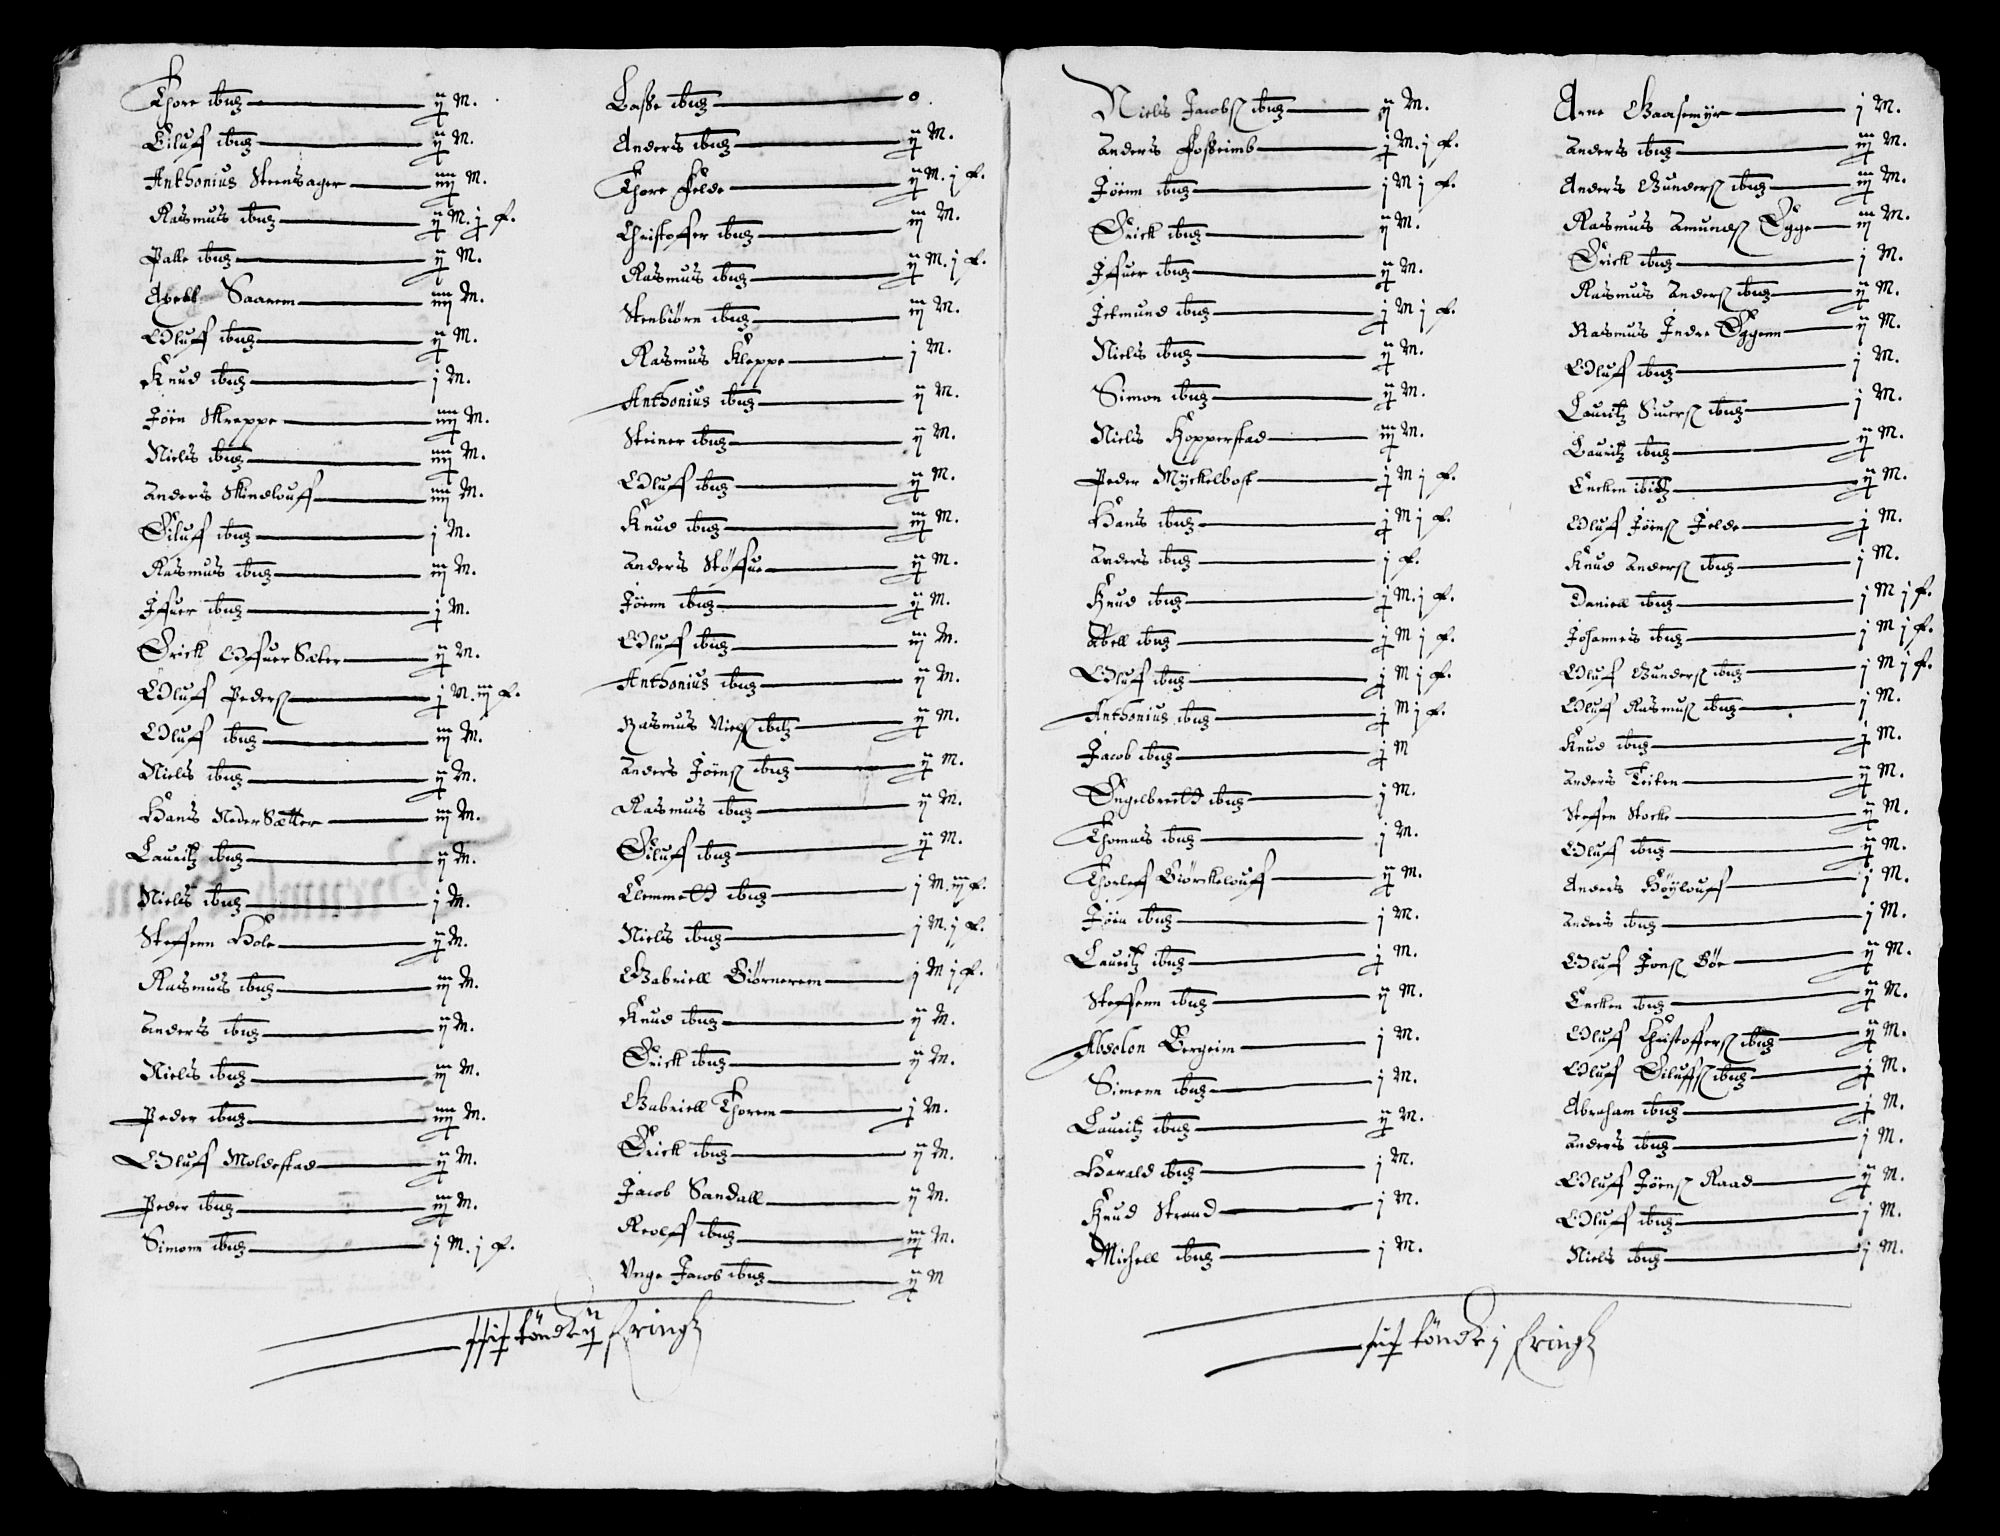 Thore ibidᵐ ij M.
Eiluff ibidᵐ ij M.
Anthonius Steensager iiij M.
Rasmus ibidᵐ ij M. j f.
Palle ibidᵐ ij M.
Abell Saarem iiij M.
Oluff ibidᵐ ij M.
Knud ibidᵐ j M.
Jøen Skreppe iiij M.
Niels ibidᵐ iiij M.
Anders Skindlouff iiij M.
Eiluff ibidᵐ j M.
Rasmus ibidᵐ iij M.
Ifuer ibidᵐ j M.
Erick OfuerSæter ij M.
Oluff Peders j M. iij f.
Oluff ibidᵐ iij M.
Niels ibidᵐ ij M.
Hans NederSætter iij M.
Lauritz ibidᵐ ij M.
Niels ibidᵐ j M.
Steffenn Hole ij M.
Rasmus ibidᵐ iij M.
Anders ibidᵐ ij M.
Niels ibidᵐ iij M.
Peder ibidᵐ iiij M.
Oluff Moldestad ij M.
Peder ibidᵐ iij M.
Simonn ibidᵐ j M. j f.
Lasse ibidᵐ o.
Anders ibidᵐ ij M.
Thore Felde ij M. j f.
Christoffer ibidᵐ iij M.
Rasmus ibidᵐ ij M. j f.
Stenbiørn ibidᵐ iij M.
Rasmus Kleppe j M.
Anthonius ibidᵐ ij M.
Steiner ibidᵐ ij M.
Oluff ibidᵐ ij M.
Knud ibidᵐ iij M.
Anders Støffue ij M.
Jøenn ibidᵐ ij M.
Oluff ibidᵐ iij M.
Anthonius ibidᵐ ij M.
Rasmus Niels ibidᵐ ij M.
Anders Jøens ibidᵐ ij M.
Rasmus ibidᵐ ij M.
Eiluff ibidᵐ ij M.
Clemmeld ibidᵐ j M. iij f.
Niels ibidᵐ j M. j f.
Gabriell Biørnerem j M j f.
Knud ibidᵐ ij M.
Erick ibidᵐ ij M.
Gabriell Thorem j M.
Erick ibidᵐ ij M.
Jacob Sandall ij M.
Reolff ibidᵐ iij M.
Vnge Jacob ibidᵐ ij M
tønder ij
Niels Jacobs ibidᵐ ij M.
Anders Fosseimb j M. j f.
Jøenn ibidᵐ j M j f.
Erick ibidᵐ ij M.
Ifuer ibidᵐ ij M.
Jetmund ibidᵐ j M j f.
Niels ibidᵐ ij M.
Simon ibidᵐ ij M.
Niels Kopperstad iij M.
Peder Myckelbost j M j f.
Hans ibidᵐ j M j f.
Anders ibidᵐ j f.
Knud ibidᵐ j M. j f.
Abell ibidᵐ j M j f.
Oluff ibidᵐ j M j f.
Anthonius ibidᵐ j M j f.
Jacob ibidᵐ j M
Engelbreeld ibidᵐ j M.
Thomas ibidᵐ j M.
Thorleff Biørckelouff ij M.
Jøen ibidᵐ j M.
Lauritz ibidᵐ j M.
Steffenn ibidᵐ ij M.
Absolon Bergeim j M.
Simonn ibidᵐ j M.
Lauritz ibidᵐ ij M.
Harald ibidᵐ j M.
Knud Strand j M.
Michell ibidᵐ j M.
Arne Gaasemyr j M.
Anders ibidᵐ iij M.
Anders Gunders ibidᵐ iij M.
Rasmus Amunds Egge iij M.
Erick ibidᵐ j M.
Rasmus Anders ibidᵐ ij M.
Rasmus Indre Eggenn ij M.
Oluff ibidᵐ j M.
Lauritz Siuers ibidᵐ j M.
Lauritz ibidᵐ ij M.
Encken ibidᵐ ij M.
Oluff Jøens Jelde j M.
Knud Anders ibidᵐ j M.
Daniell ibidᵐ j M j f.
Johannes ibidᵐ j M j f.
Oluff Gunders ibidᵐ j M j f.
Oluff Rasmus ibidᵐ j M.
Knud ibidᵐ j M.
Anders Leiten ij M.
Steffen Stocke ij M.
Oluff ibidᵐ ij M.
Anders Høylouff j M.
Anders ibidᵐ j M.
Oluff Jons Bøe ij M.
Encken ibidᵐ ij M.
Oluff Christoffers ibidᵐ ij M.
Oluff Eiluffs ibidᵐ j M.
Abraham ibidᵐ j M.
Anders ibidᵐ j M.
Oluff Jøens Raad ij M.
Oluff ibidᵐ j M.
Niels ibidᵐ j M.
tønder j